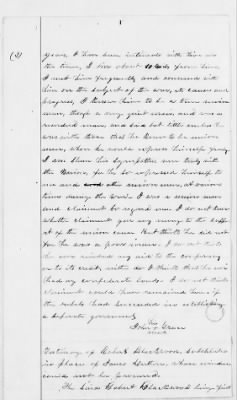 (2)
years. I have been intimate with him all
the time, I live about 10 miles from him,
I met him frequently and conversed with
him on the subject of the war, its causes and
progress, I knew him to be a Union
man, though a very quiet man, and was a
guarded man, and said but little unless he
was with those that he knew to be union
men, when he would express himself freely
I am sure his sympathies were truly with
the Union, for he so expressed himself to
me and other union men, at various
times during the war. I was a union man
and claimant so regard me. I do not know
whether claimant gave any money to the support
of the union cause but think he did not
for he was a poor man. I do not think
he ever rendered any aid to the confederacy
or to its credit, neither do I think that he ever
had any confederate bonds. I do not think
claimant could have remained here if
the rebels had succeeded in establishing
a separate government
his
John Green
mark
Testimony of Robert Blackwood, substitute
in place of James whose evidence
could not be procured.
The Said Robert Blackwood being first